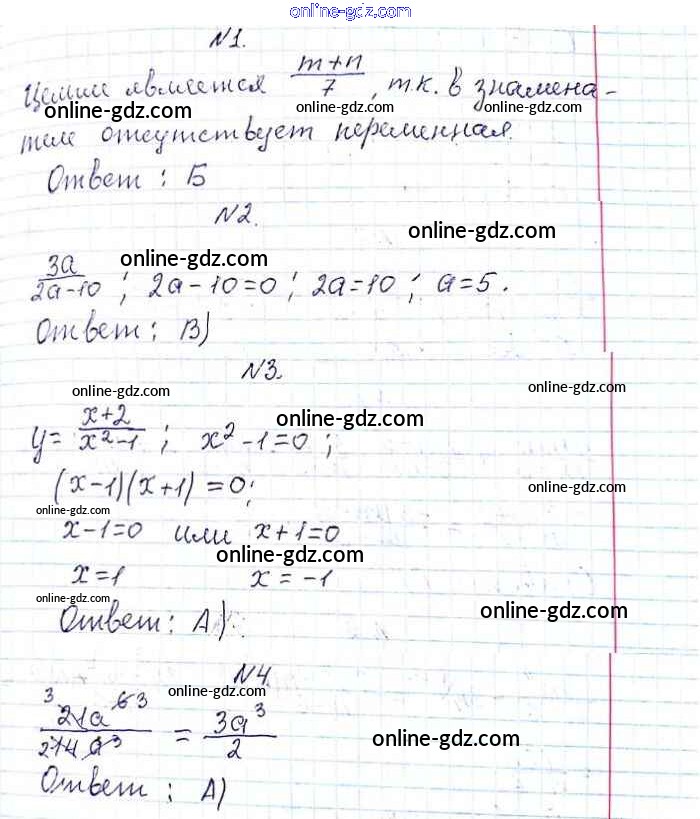 online-gdz.com
N1.
Целым является (m+n)/7, т.к. в знамена-
online-gdz.com online-gdz.com online-gdz.com
теле отсутствует переменная.
Ответ: Б
N2.
online-gdz.com
online-gdz.com
3a/(2a-10); 2a-10=0; 2a=10; a=5.
Ответ: В)
N3.
online-gdz.com online-gdz.com
online-gdz.com
y=(x+2)/(x²-1); x²-1=0;
(x-1)(x+1)=0;
online-gdz.com
online-gdz.com
x-1=0 или x+1=0
online-gdz.com
x=1 x=-1
online-gdz.com
online-gdz.com
Ответ: А)
N4.
online-gdz.com
3 3
21a⁶/(14a³) = 3a³/2
2
online-gdz.com
Ответ: А)
online-gdz.com